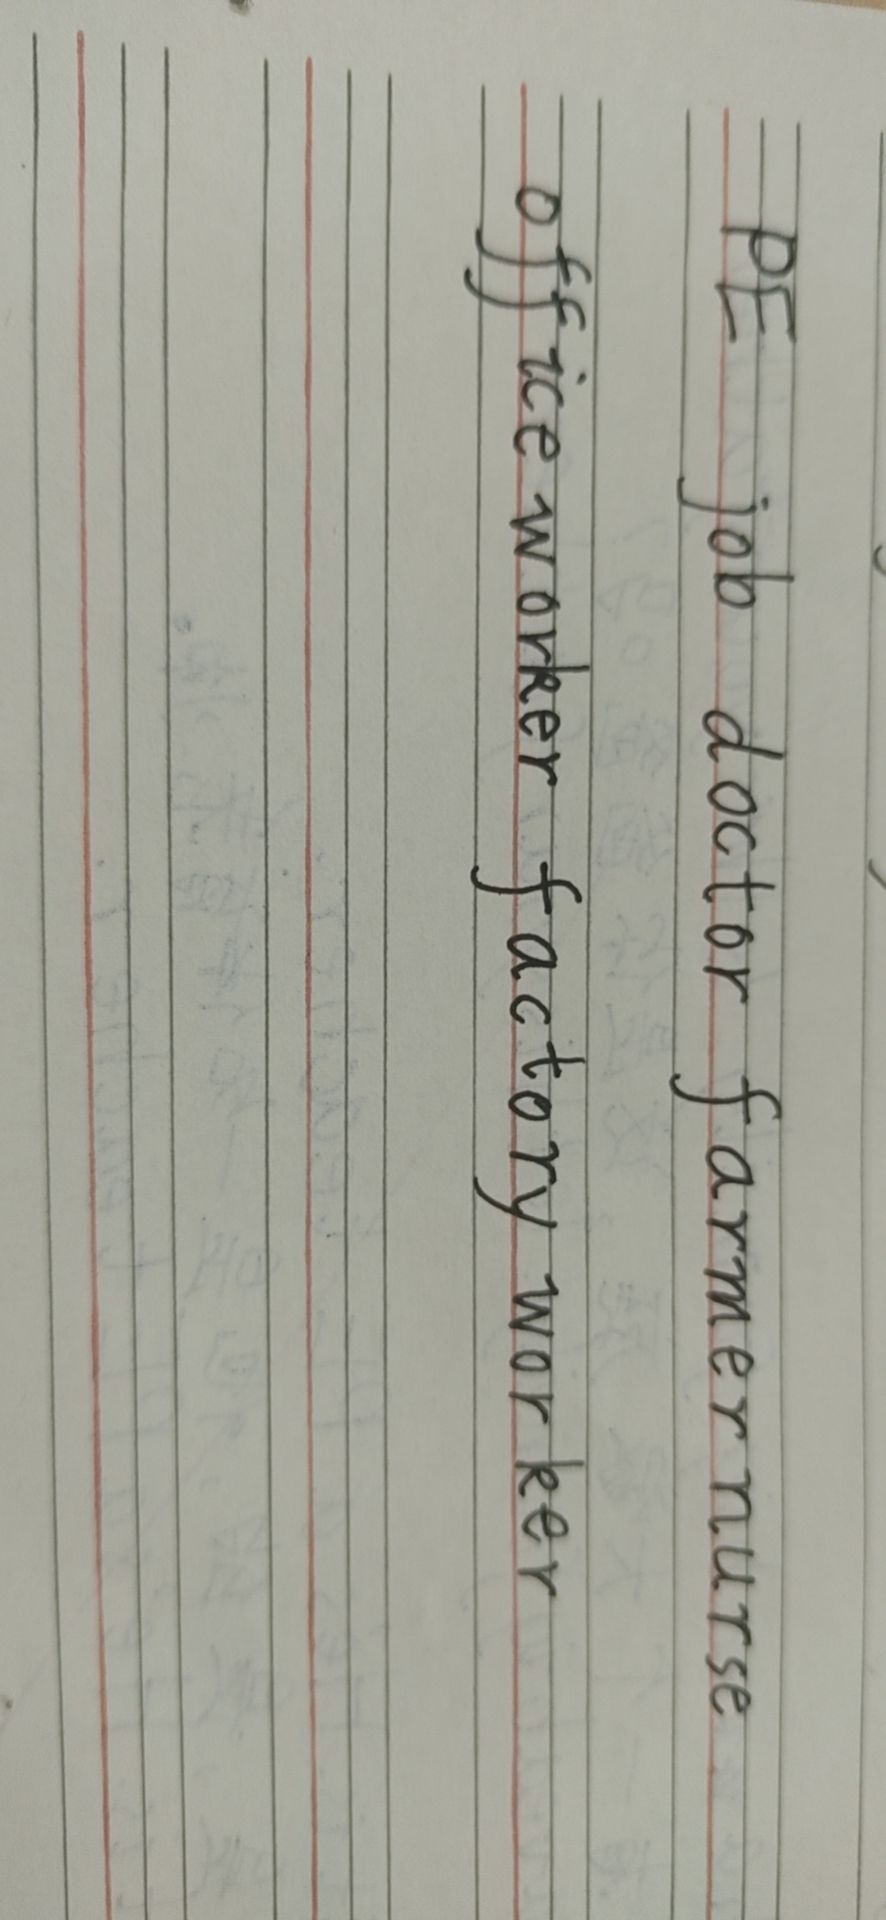 PE job doctor farmer nurse
office worker factory worker